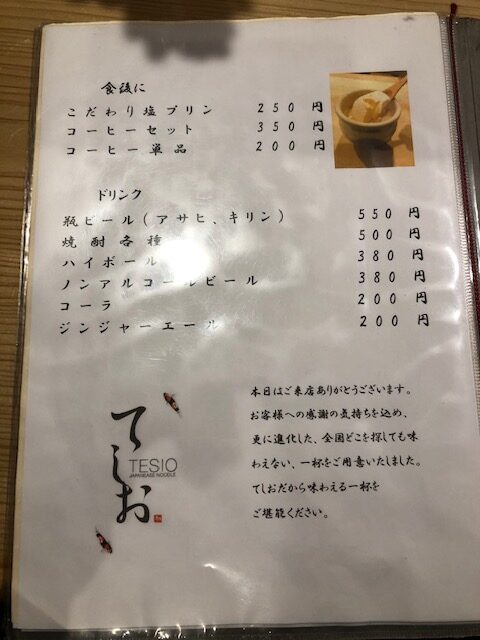 食後に
こだわり塩プリン 250円
コーヒーセット 350円
コーヒー単品 200円
ドリンク
瓶ビール(アサヒ、キリン) 550円
焼酎各種 500円
ハイボール 380円
ノンアルコールビール 380円
コーラ 200円
ジンジャーエール 200円
本日はご来店ありがとうございます。
お客様への感謝の気持ちを込め、
更に進化した、全国どこを探しても味
わえない、一杯をご用意いたしました。
てしおだから味わえる一杯を
ご堪能ください。
てしお
TESIO
JAPANEASE NOODLE